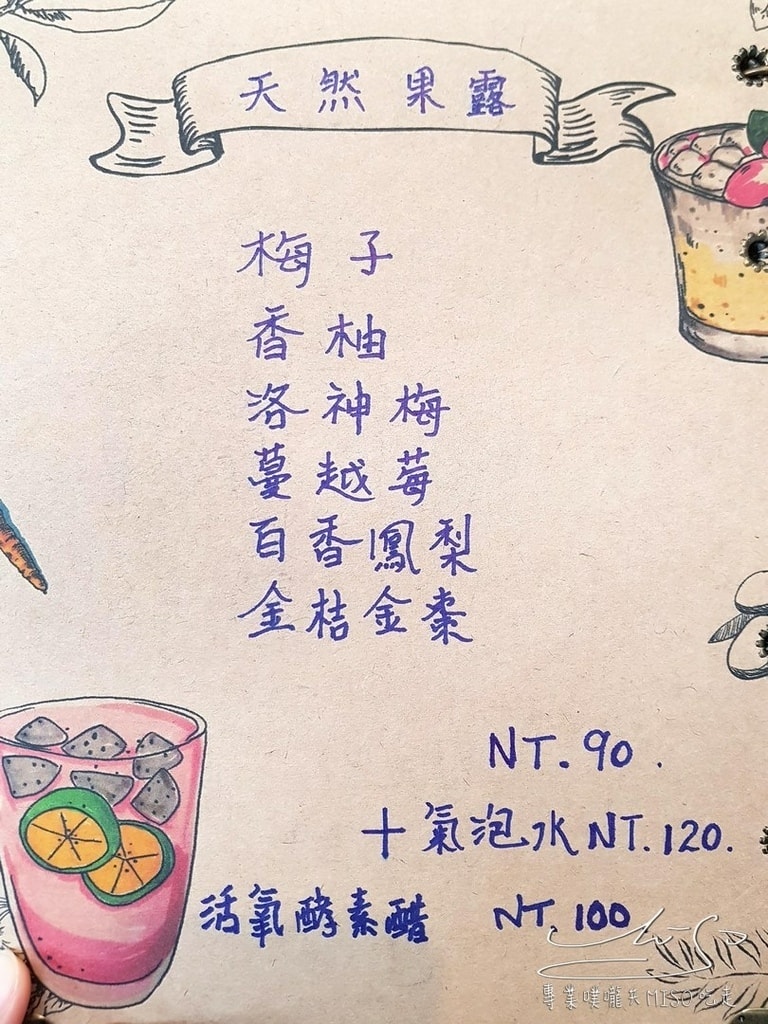 天然果露
梅子
香柚
洛神梅
蔓越莓
百香鳳梨
金桔金棗
NT.90.
十氣泡水NT.120.
活氧酵素醋 NT.100
專業噗嚨共MISO吃走